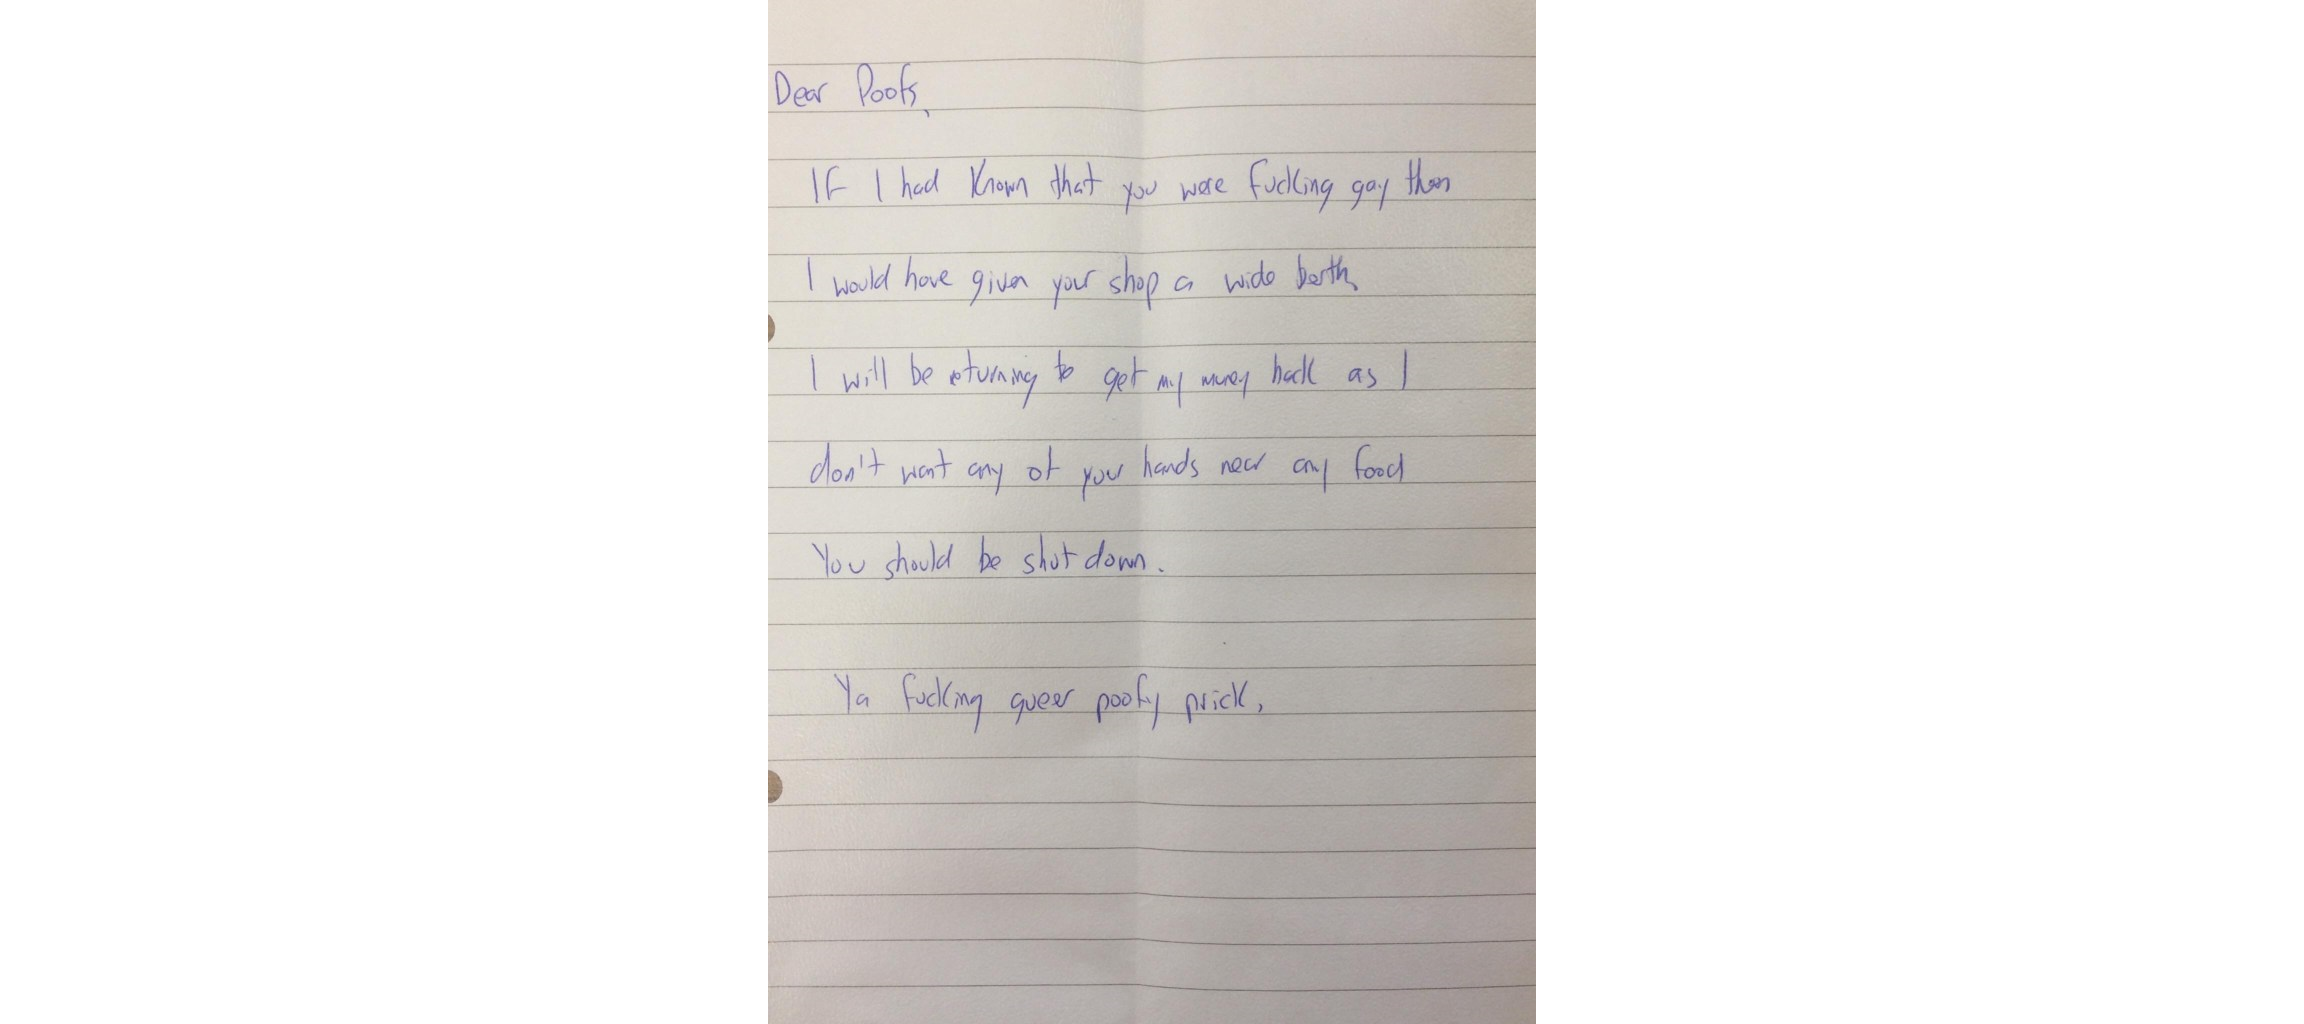 Dear Poofs,
IF I had Known that you were fucking gay then
I would have given your shop a wide berth,
I will be returning to get my money back as I
don't want any of your hands near any food
You should be shut down.
Ya fucking queer poofy prick,